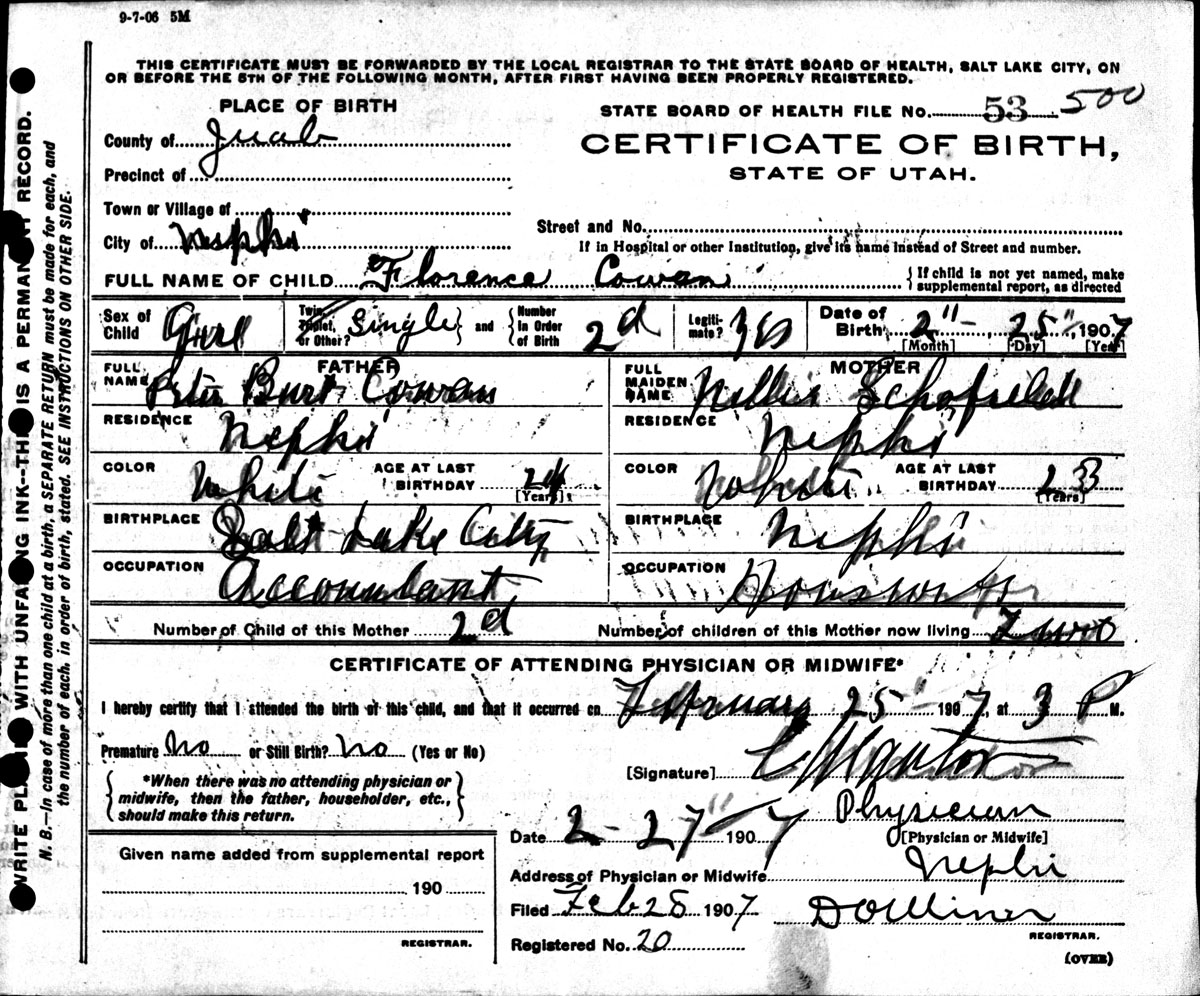 9-7-06 5M
THIS CERTIFICATE MUST BE FORWARDED BY THE LOCAL REGISTRAR TO THE STATE BOARD OF HEALTH, SALT LAKE CITY, ON
OR BEFORE THE 5TH OF THE FOLLOWING MONTH, AFTER FIRST HAVING BEEN PROPERLY REGISTERED.
PLACE OF BIRTH
STATE BOARD OF HEALTH FILE No. 53 500
County of Juab
CERTIFICATE OF BIRTH,
Precinct of
STATE OF UTAH.
Town or Village of
Street and No.
City of Nephi
If in Hospital or other Institution, give its name instead of Street and number.
FULL NAME OF CHILD Florence Cowan { If child is not yet named, make supplemental report, as directed
Sex of Child Girl
Twin, Triplet, or Other? Single } and { Number in Order of Birth 2d
Legitimate? Yes
Date of Birth 2" 25", 1907
[Month] [Day] [Year]
FATHER
FULL NAME Peter Burt Cowan
RESIDENCE Nephi
COLOR White AGE AT LAST BIRTHDAY 24 [Years]
BIRTHPLACE Salt Lake City
OCCUPATION Accountant
MOTHER
FULL MAIDEN NAME Nellie
RESIDENCE Nephi
COLOR White AGE AT LAST BIRTHDAY 23 [Years]
BIRTHPLACE Nephi
OCCUPATION
Number of Child of this Mother 2d Number of children of this Mother now living Two
CERTIFICATE OF ATTENDING PHYSICIAN OR MIDWIFE*
I hereby certify that I attended the birth of this child, and that it occurred on February 25" 1907, at 3 P M.
Premature No or Still Birth? No (Yes or No)
[Signature]
{ *When there was no attending physician or midwife, then the father, householder, etc., should make this return. }
Physician
Date 2-27" 1907
[Physician or Midwife]
Given name added from supplemental report
Address of Physician or Midwife Nephi
190
Filed Feb 28 1907
REGISTRAR.
REGISTRAR.
Registered No. 20
(OVER)
WRITE PLAINLY WITH UNFADING INK--THIS IS A PERMANENT RECORD.
N. B.—In case of more than one child at a birth, a SEPARATE RETURN must be made for each, and
the number of each, in order of birth, stated. SEE INSTRUCTIONS ON OTHER SIDE.